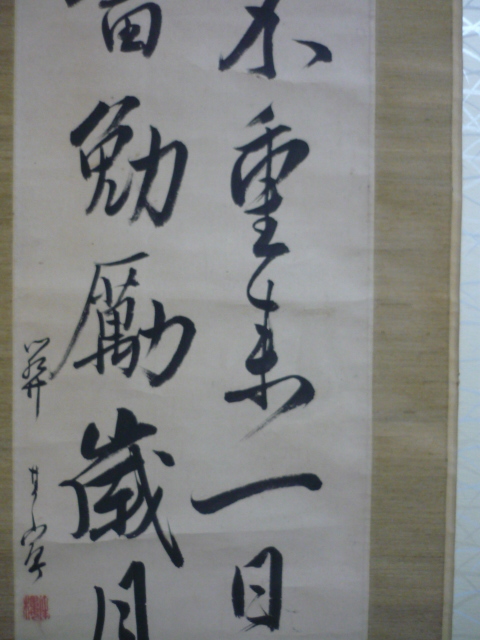 不重来一日
當勉勵歳月